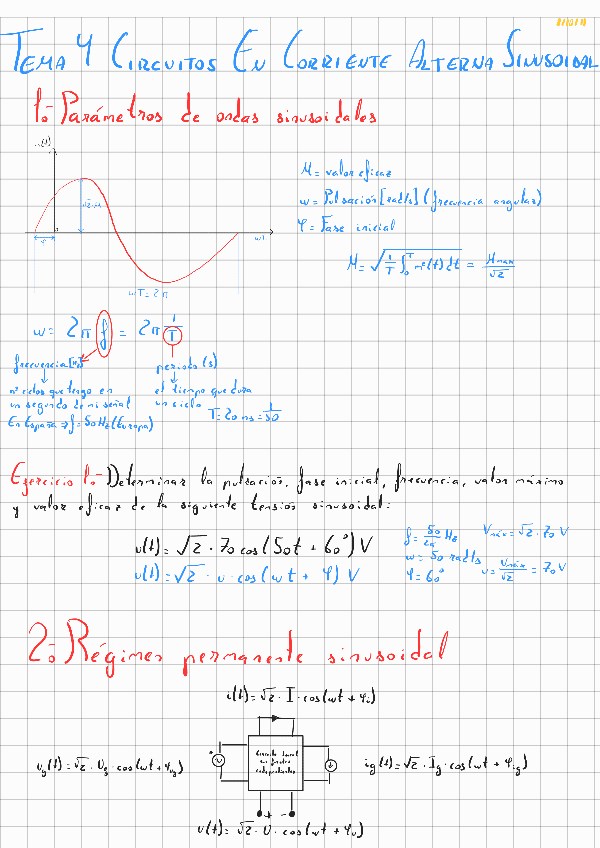 TEMA 4 CIRCUITOS EN CORRIENTE ALTERNA SINUSOIDAL
1.- Parámetros de ondas sinusoidales
M = valor eficaz
w = Pulsación [rad/s] (frecuencia angular)
φ = Fase inicial
M = √(1/T ∫₀ᵀ m²(t) dt) = Mmax/√2
wt
wT = 2π
w = 2π f = 2π 1/T
frecuencia [Hz]
periodo (s)
nº ciclos que tengo en
un segundo de mi señal
En España → f = 50 Hz (Europa)
el tiempo que dura
un ciclo
T = 20 ms = 1/50
Ejercicio 1.- Determinar la pulsación, fase inicial, frecuencia, valor máximo
y valor eficaz de la siguiente tensión sinusoidal:
u(t) = √2 · 70 cos(50t + 60°) V
u(t) = √2 · u · cos(wt + φ) V
f = 50/2π Hz
w = 50 rad/s
φ = 60°
Vmáx = √2 · 70 V
u = Vmáx/√2 = 70 V
2.- Régimen permanente sinusoidal
i(t) = √2 · I · cos(wt + φi)
ug(t) = √2 · Ug · cos(wt + φug)
Circuito lineal
sin fuentes
independientes
ig(t) = √2 · Ig · cos(wt + φig)
+ -
u(t) = √2 · U · cos(wt + φu)